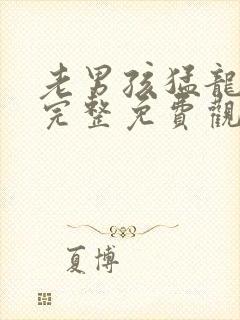 老男孩猛龍
完整免費觀
夏博